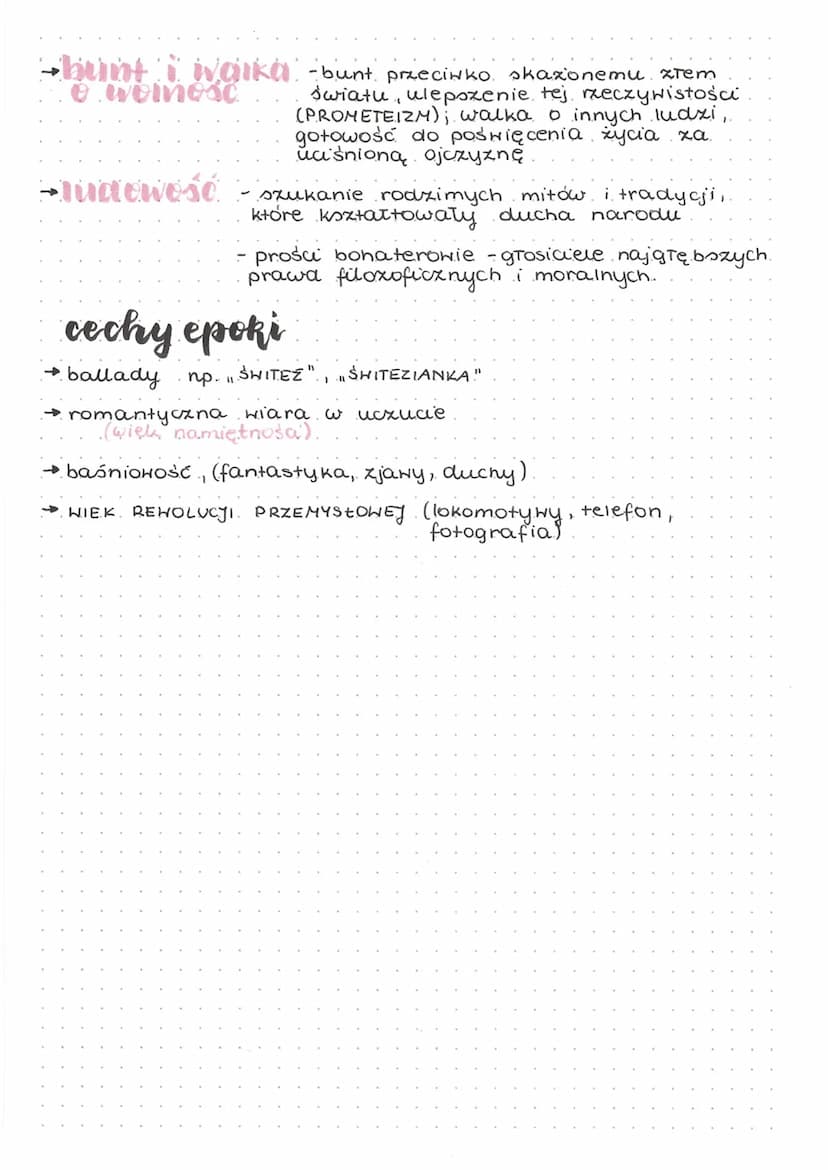 → bunt i walka - bunt przeciwko skażonemu złem
o wolność światu, ulepszenie tej rzeczywistości
(PROMETEIZM); walka o innych ludzi,
gotowość do poświęcenia życia za
uciśnioną ojczyznę
→ ludowość - szukanie rodzimych mitów i tradycji,
które kształtowały ducha narodu
- prości bohaterowie - głosiciele najgłębszych
prawd filozoficznych i moralnych.
cechy epoki
→ ballady np. „ŚWITEŹ", „ŚWITEZIANKA"
→ romantyczna wiara w uczucie
(wiek namiętności)
→ baśniowość, (fantastyka, zjawy, duchy)
→ WIEK REWOLUCJI PRZEMYSŁOWEJ (lokomotywy, telefon,
fotografia)